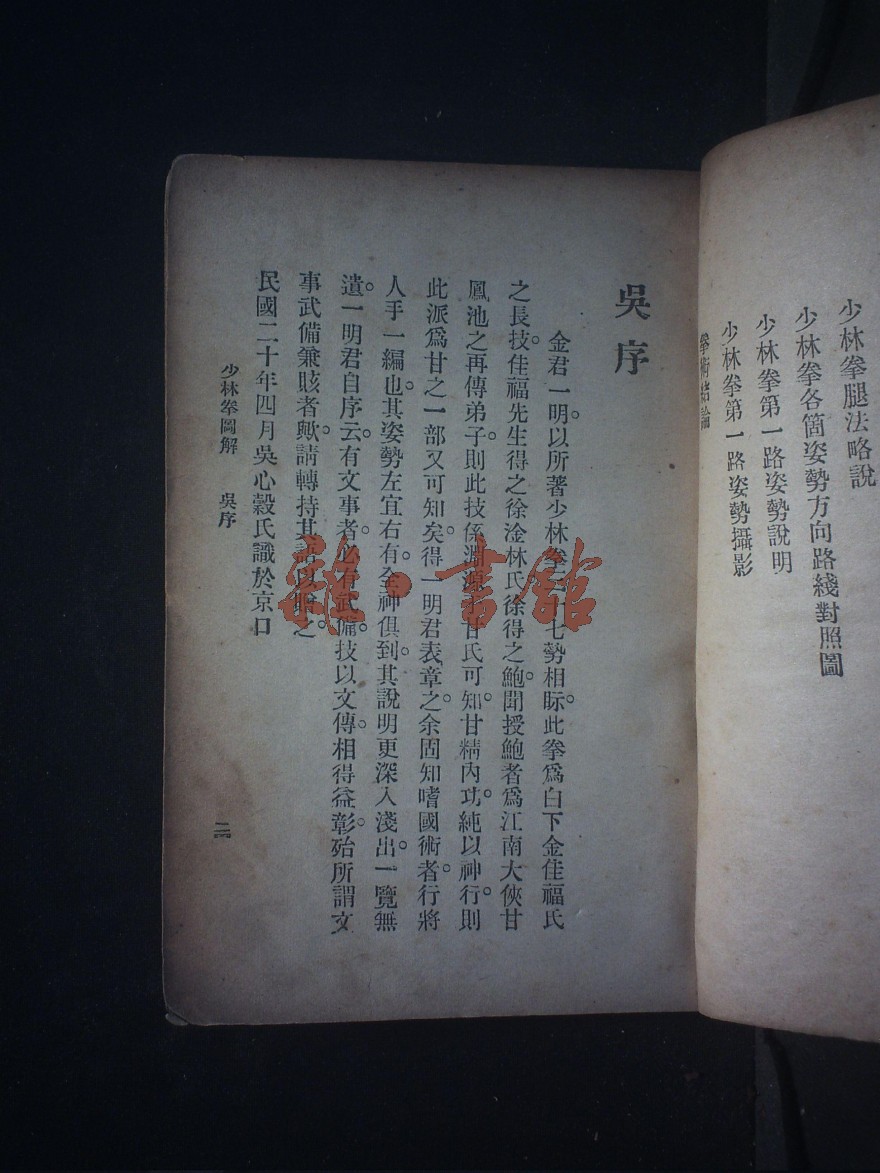 少林拳腿法略說
少林拳各箇姿勢方向路綫對照圖
少林拳第一路姿勢說明
少林拳第一路姿勢攝影
拳術結論
吳序
金君一明。以所著少林拳 十七勢相眎。此拳爲白下金佳福氏
之長技。佳福先生得之徐淦林氏。徐得之鮑。聞授鮑者爲江南大俠甘
鳳池之再傳弟子。則此技係淵源 甘氏可知。甘精內功。純以神行。則
此派爲甘之一部又可知矣。得一明君表章之。余固知嗜國術者。行將
人手一編也。其姿勢左宜右有。全神俱到。其說明更深入淺出。一覽無
遺。一明君自序云。有文事者。必有武備。技以文傳。相得益彰。殆所謂文
事武備兼賅者歟。請轉持其 以 之。
民國二十年四月吳心穀氏識於京口
少林拳圖解 吳序
二
雜·書館